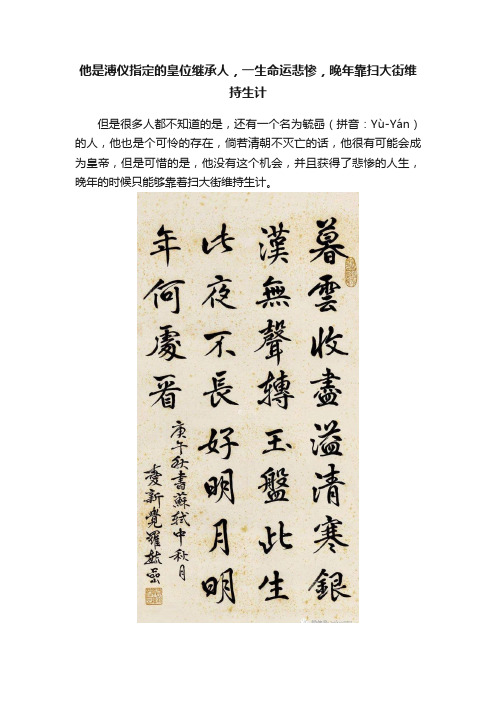 他是溥仪指定的皇位继承人，一生命运悲惨，晚年靠扫大街维
持生计
但是很多人都不知道的是，还有一个名为毓嵒（拼音：Yù-Yán）
的人，他也是个可怜的存在，倘若清朝不灭亡的话，他很有可能会成
为皇帝，但是可惜的是，他没有这个机会，并且获得了悲惨的人生，
晚年的时候只能够靠着扫大街维持生计。
暮雲收盡溢清寒銀
漢無聲轉玉盤此生
此夜不長好明月明
年何處看
庚午秋書蘇軾中秋月
愛新覺羅毓嵒